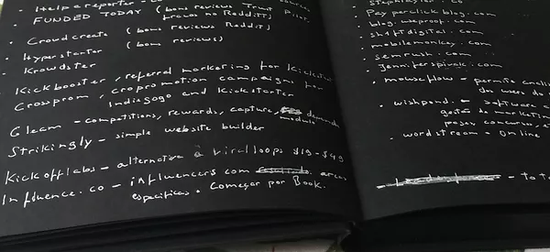 Help a reporter -
FUNDED TODAY (bons reviews Trust Pilot
bravos no Reddit)
• Crowdcreate (bons reviews Reddit)
• Hyperstarter (bons reviews)
• Krowdster
Kickbooster, referral marketing for Kickstar
Crossprom, cropromotion campaigns for
Indiegogo and Kickstarter
Gleam - competitions, rewards, capture,
Strikingly - simple website builder
Kickofflabs - alternative à viral loops $19-$49
Influence.co - influencers com areas
especificas. Começar por Book.
• Payperclick blog.com
• blog.weproof.com
• shiftdigital.com
• mobilemonkey.com
• semrush.com
• jenniferspivak.com
• mouseflow - permite anali
dos users do
• wishpond - software
gestão de marketin
pages, concursos, e
• wordstream - online